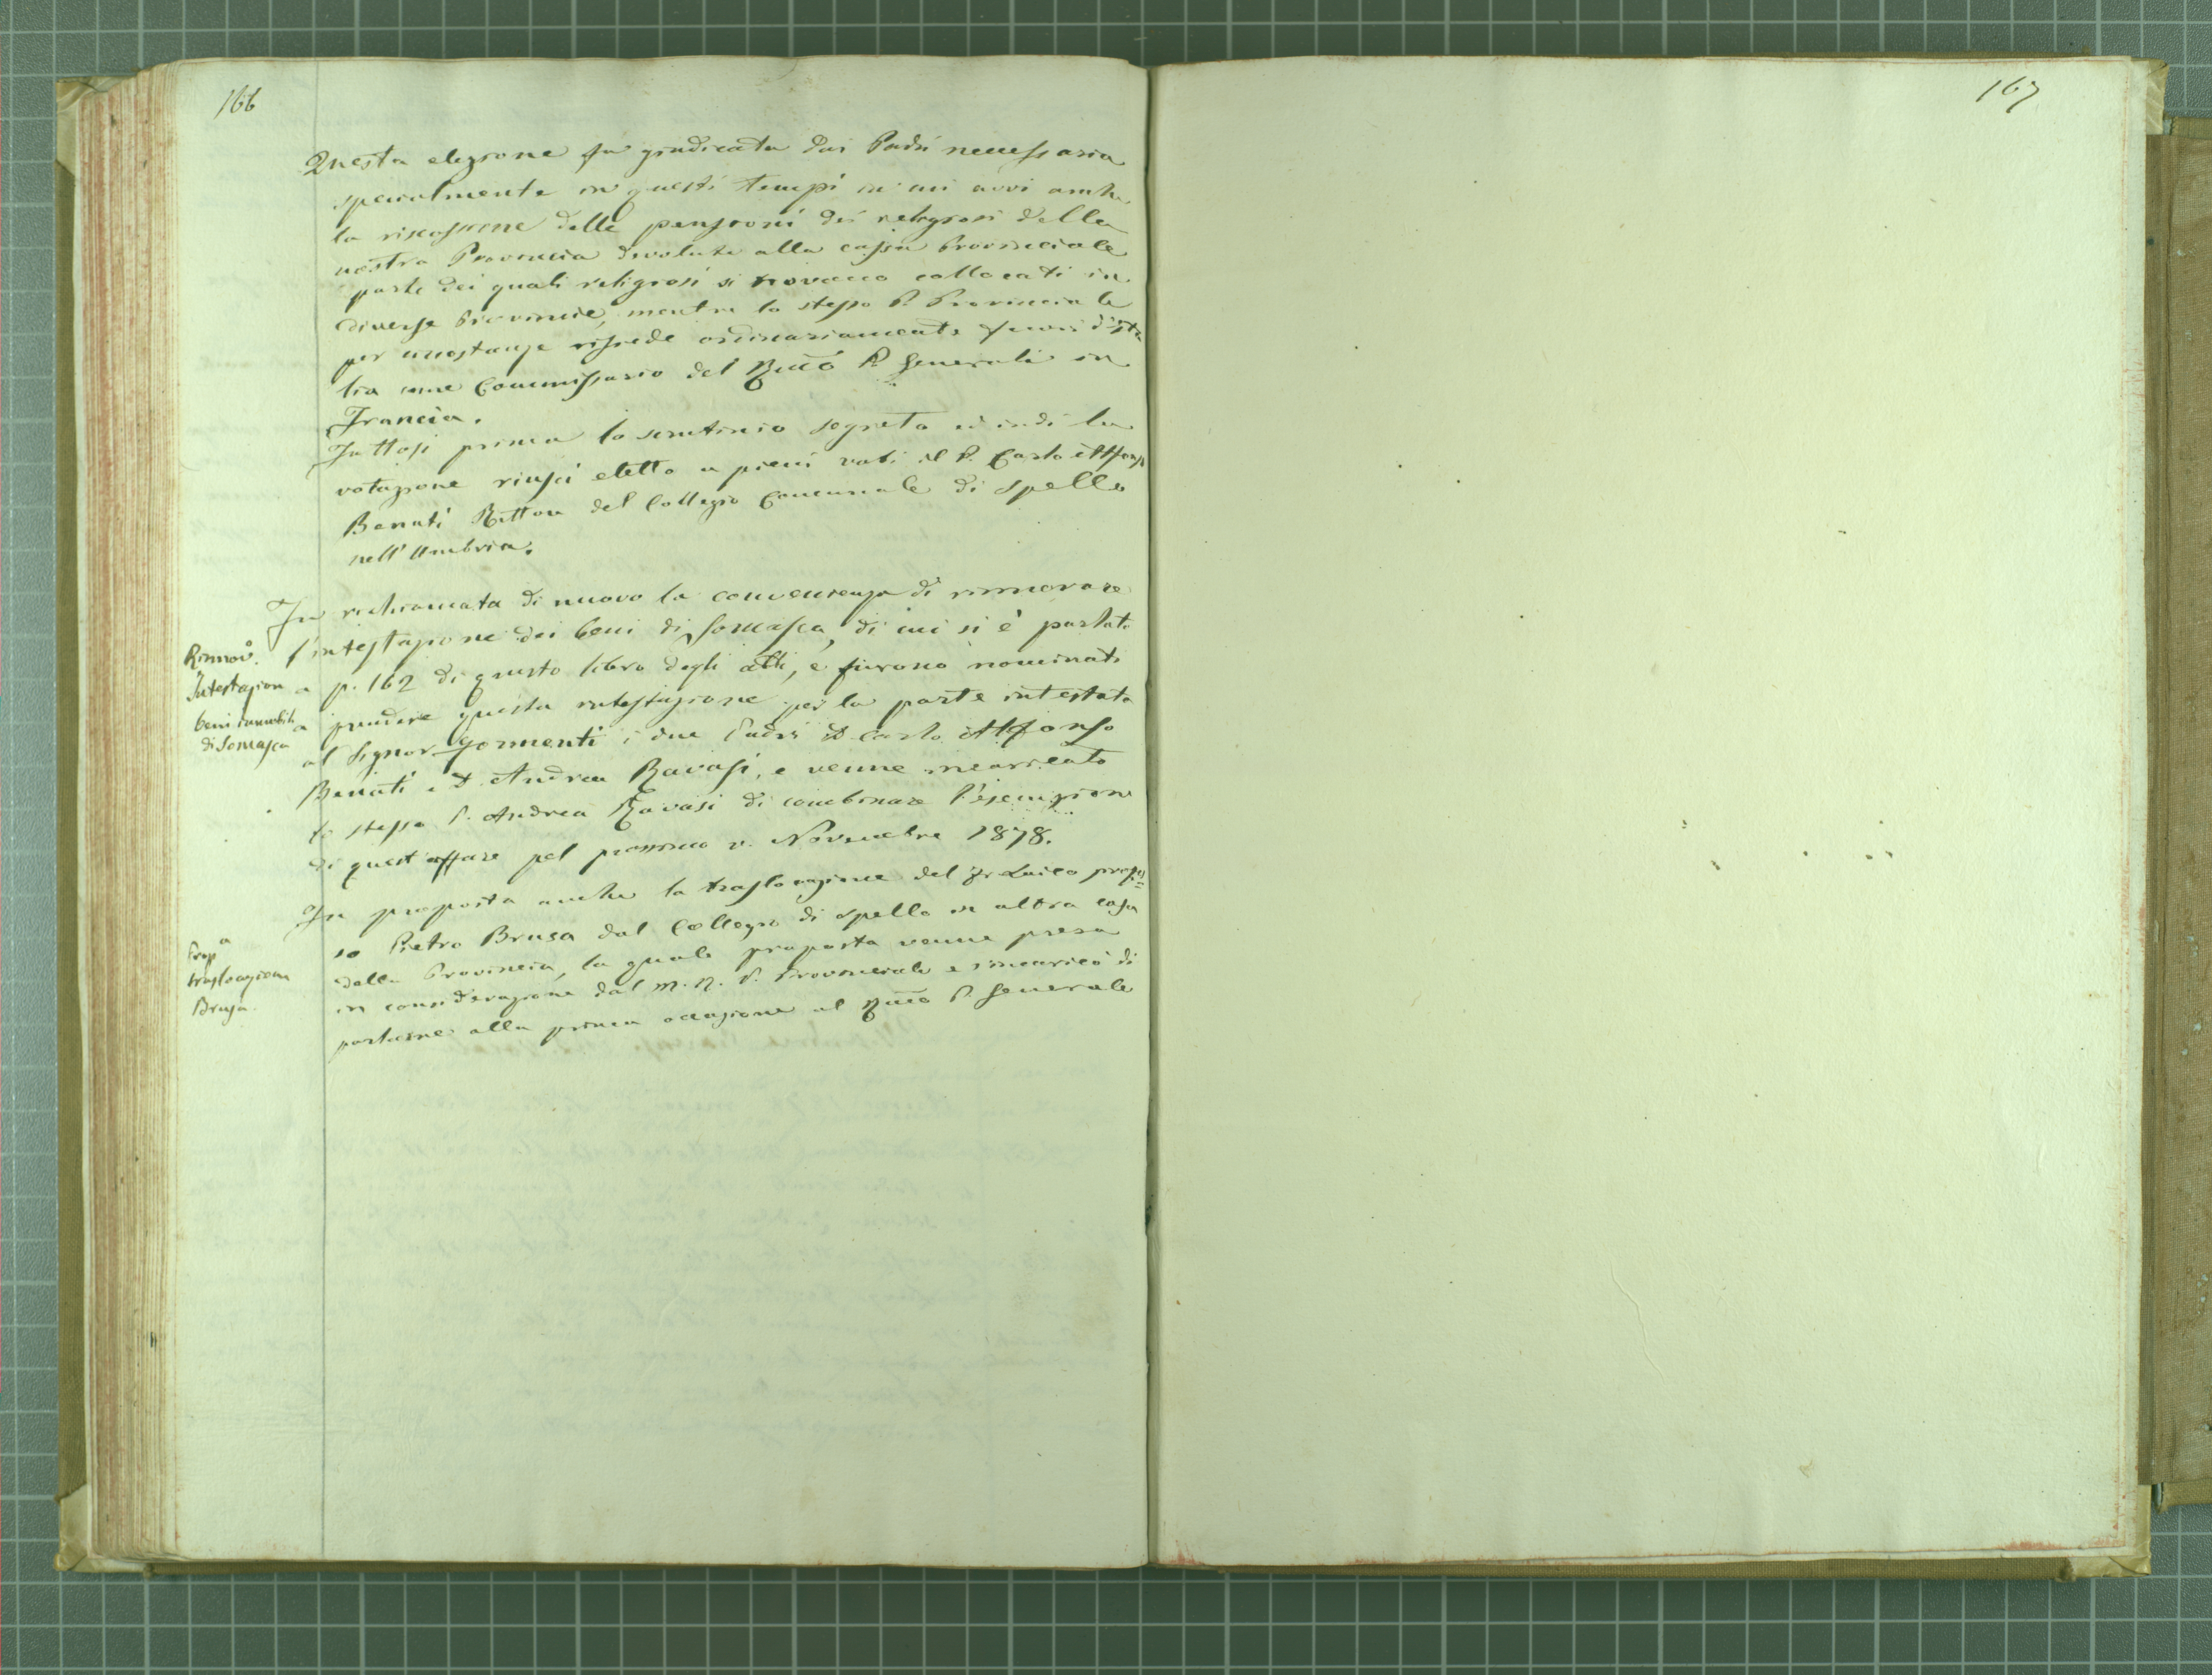 166
Questa elezione fu giudicata dai Padri necessaria
specialmente in questi tempi in cui avvi anche
la riscossione delle pensioni dei religiosi della
nostra Provincia devolute alla cassa Provinciale
parte dei quali religiosi si trovano collocati in
diverse Provincie, mentre lo stesso P. Provinciale
per circostanze risiede ordinariamente fuori d'Ita
lia come Commissario del Rmo P. Generale in
Francia.
Fattosi prima lo scrutinio segreto ed indi la
votazione riuscì eletto a pieni voti il P. Carlo Alfonso
Benati Rettore del Collegio Comunale di Spello
nell'Umbria.
Fu richiamata di nuovo la convenienza di rinnovare
Rinnov.
Intestazion
beni immobili
di Somasca
l'intestazione dei beni di Somasca, di cui si è parlato
a p. 162 di questo libro degli atti, e furono nominati
a prendere questa intestazione per la parte intestata
al Signor Gormenti i due Padri D. Carlo Alfonso
Benati e D. Andrea Ravasi, e venne incaricato
lo stesso P. Andrea Ravasi di combinare l'esecuzione
di quest'affare pel prossimo v. Novembre 1878.
Fu proposta anche la traslocazione del Fr. Laico profes=
Propa
traslocazione
Brusa.
so Pietro Brusa dal Collegio di Spello in altra casa
della Provincia, la quale proposta venne presa
in considerazione dal M. R. P. Provinciale e s'incaricò di
parlarne alla prima occasione al Rmo P. Generale
167